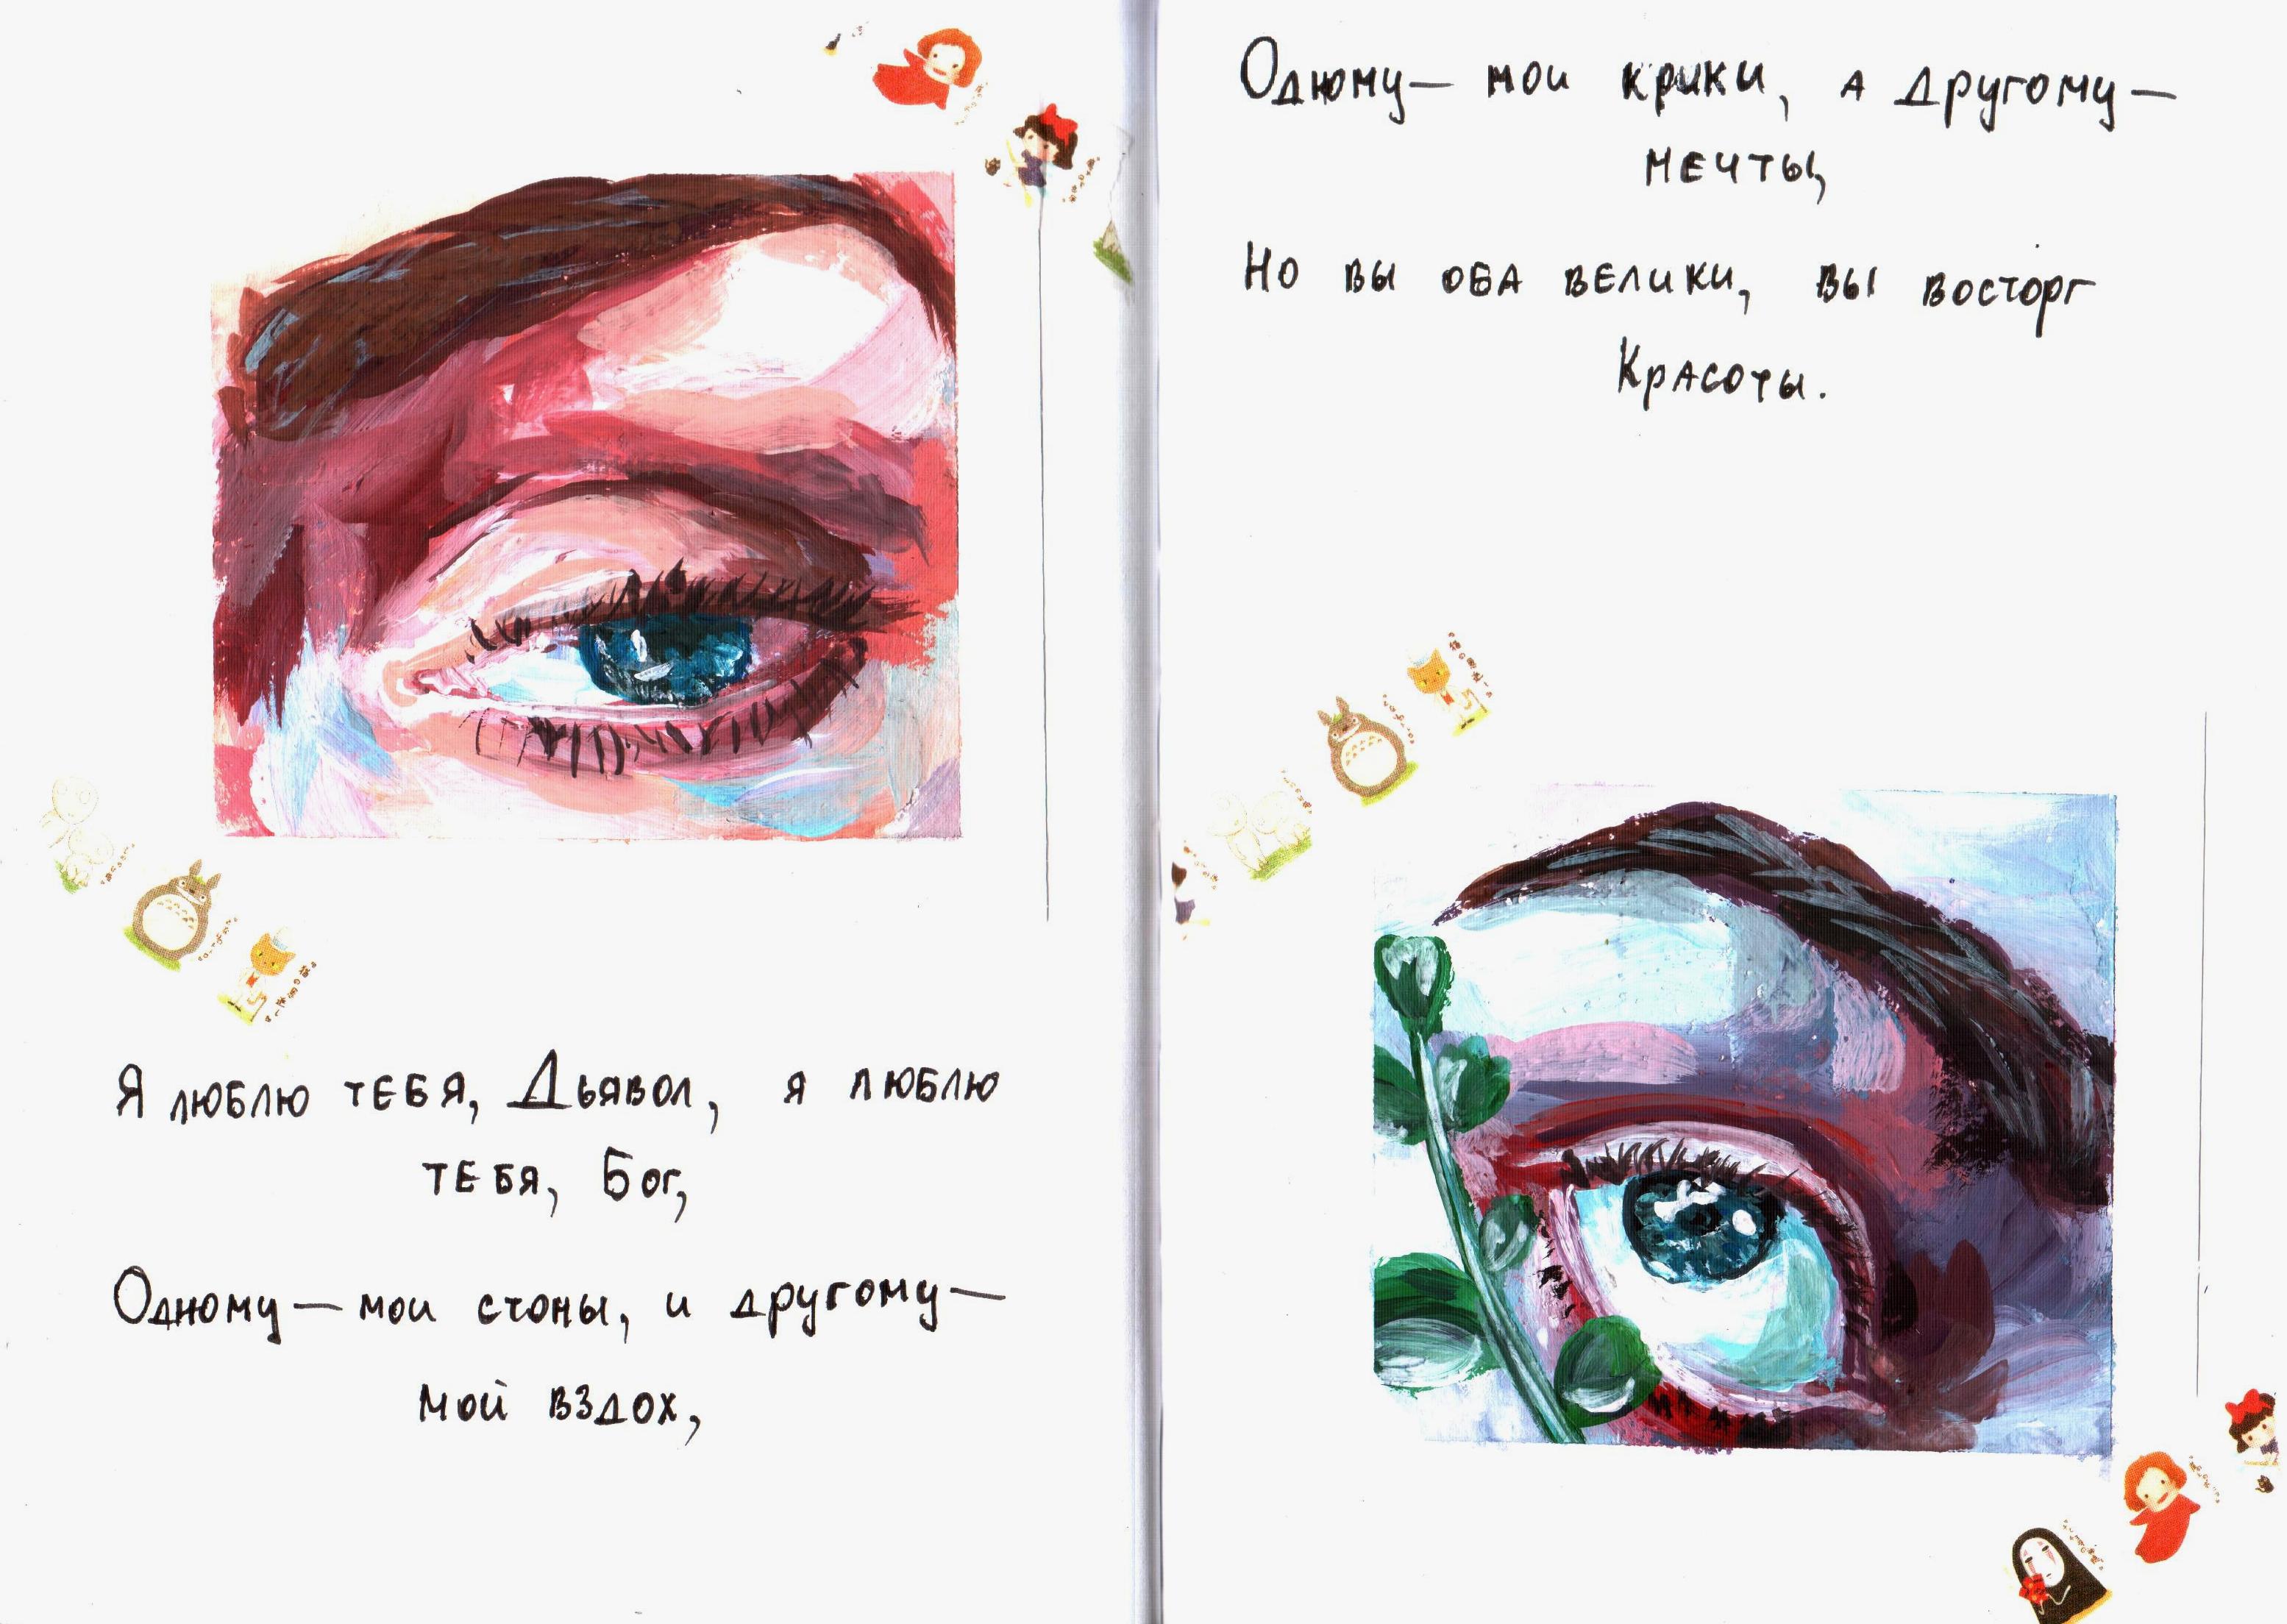 Я люблю тебя, Дьявол, я люблю
тебя, Бог,
Одному — мои стоны, и другому —
мой вздох,
Одному — мои крики, а другому —
мечты,
Но вы оба велики, вы восторг
Красоты.